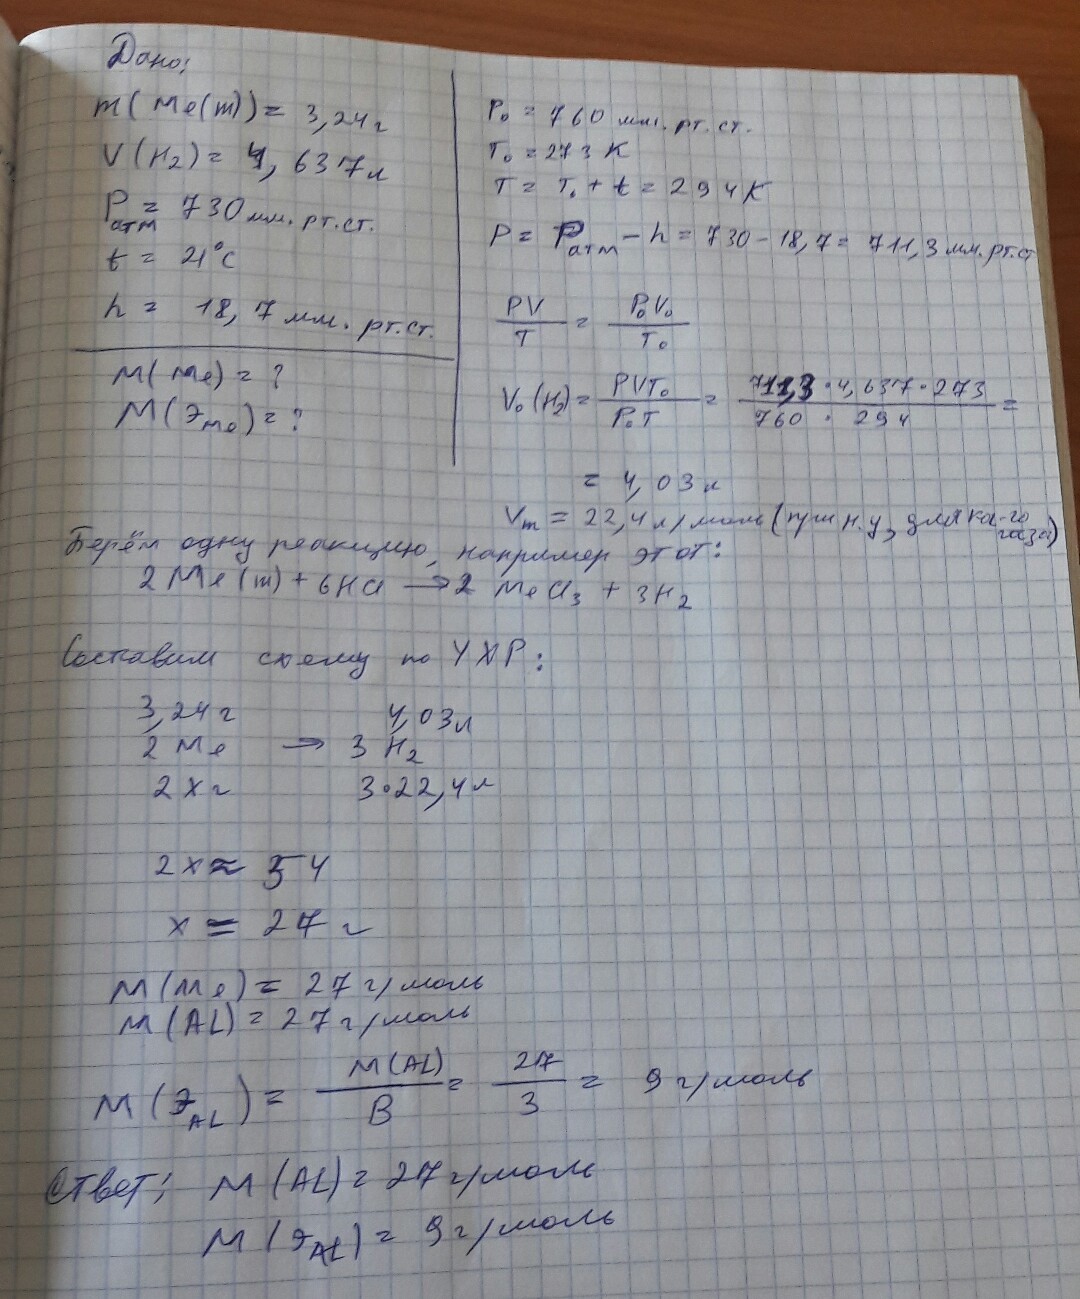 Дано:
m(Me(т)) = 3,24г
V(H₂) = 4,637л
Pатм = 730 мм.рт.ст.
t = 21°C
h = 18,7 мм.рт.ст.
M(Me) = ?
M(ЭMe) = ?
P₀ = 760 мм.рт.ст.
T₀ = 273 K
T = T₀ + t = 294K
P = Pатм – h = 730 – 18,7 = 711,3 мм.рт.ст
PV/T = P₀V₀/T₀
V₀(H₂) = PVT₀/P₀T = 711,3·4,637·273/760·294 =
= 4,03л
Vm = 22,4 л/моль (при н.у, для ка-го газа)
Берём одну реакцию, например этот:
2Me(т) + 6HCl → 2MeCl₃ + 3H₂
Составим схему по УХР:
3,24г 4,03л
2Me → 3H₂
2xг 3·22,4л
2x ≈ 54
x = 27г
M(Me) = 27 г/моль
M(AL) = 27 г/моль
M(ЭAL) = M(AL)/B = 27/3 = 9 г/моль
Ответ: M(AL) = 27 г/моль
M(ЭAL) = 9 г/моль